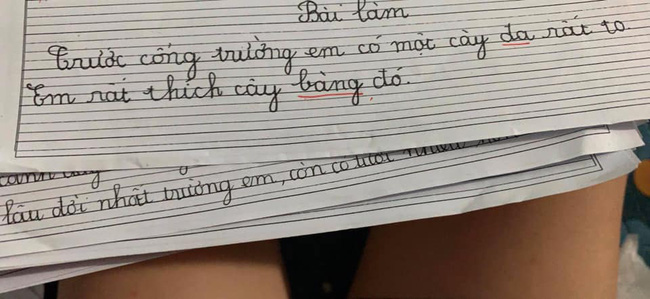 Bài làm
Trước cổng trường em có một cây đa rất to
Em rất thích cây bàng đó.
lâu đời nhất trường em, còn có